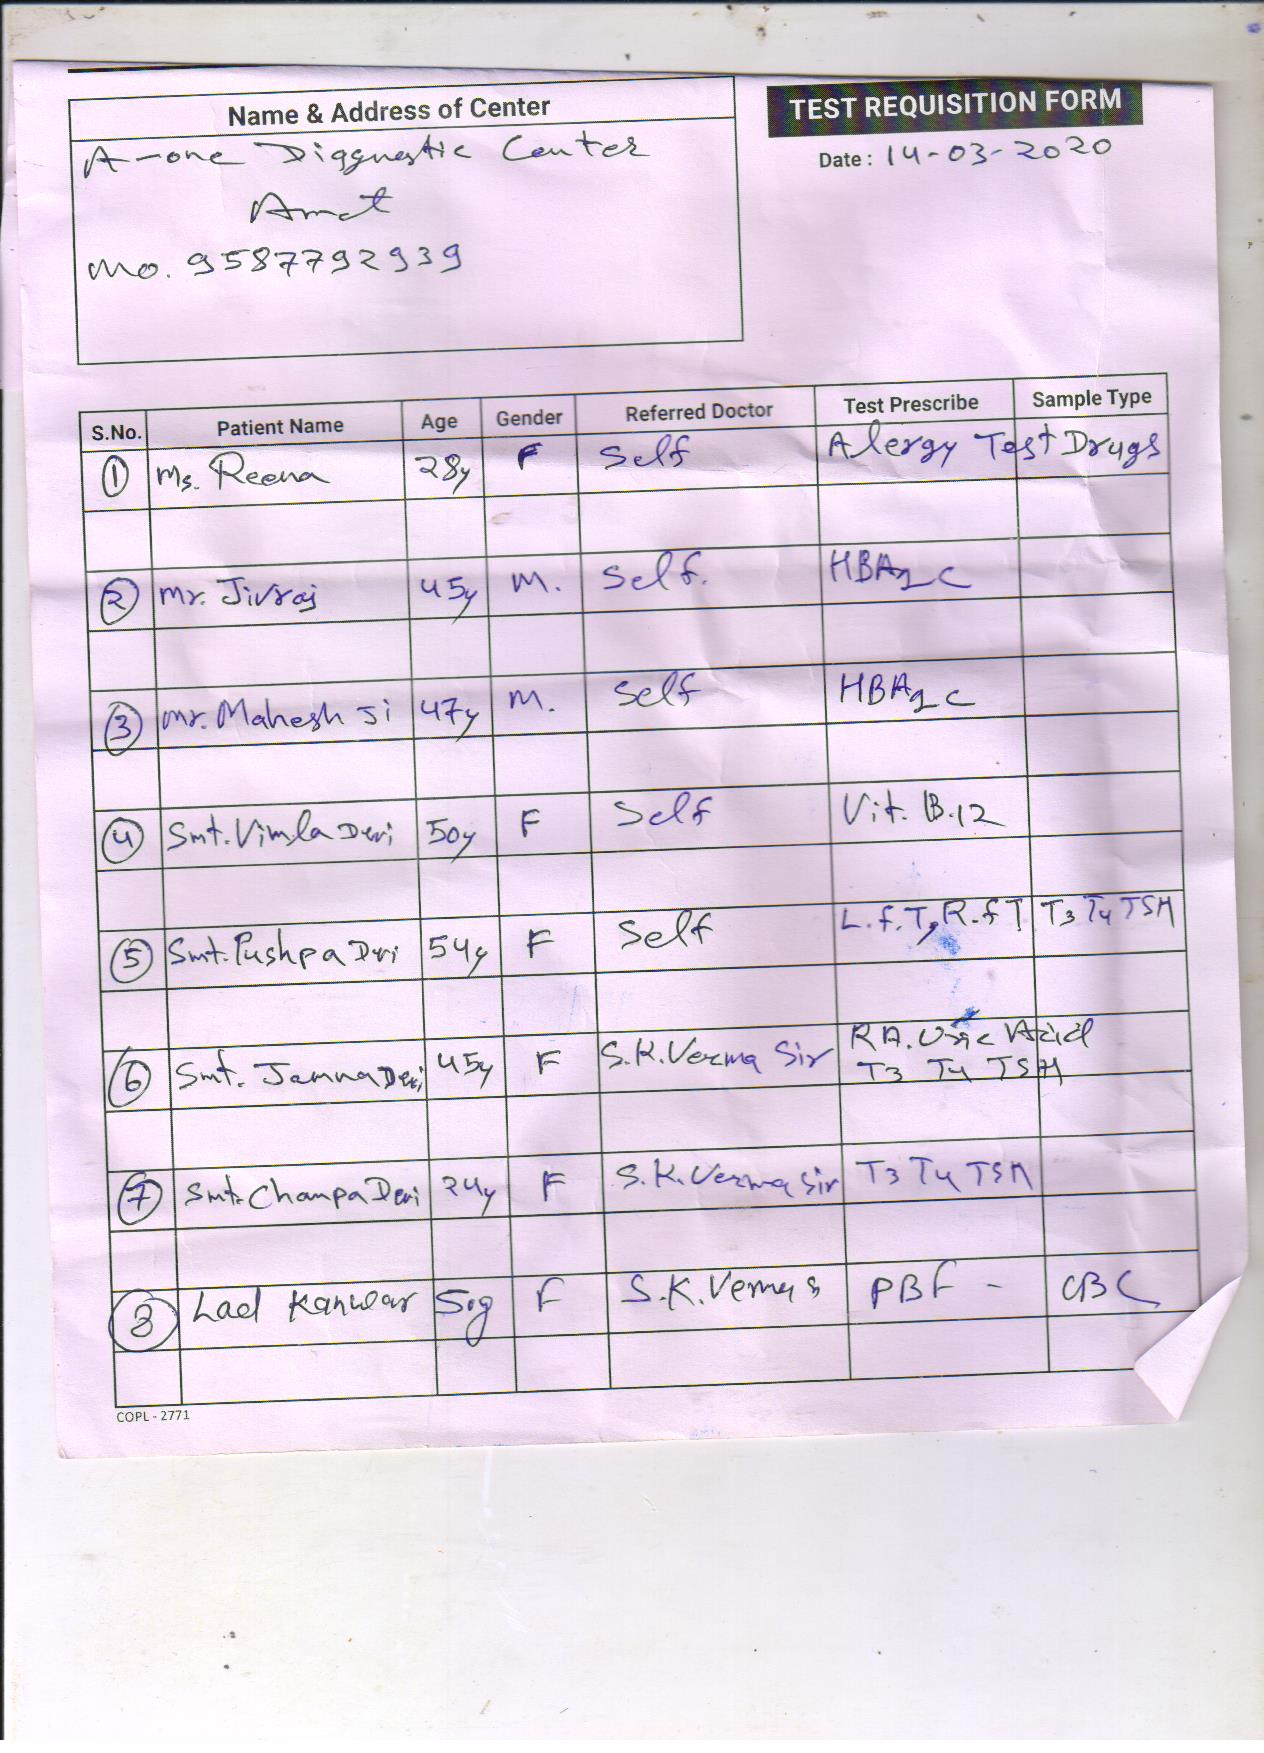 Name & Address of Center
A-one Diggnestic Center
Amet
Mo. 9587792939
TEST REQUISITION FORM
Date : 14-03-2020
S.No. Patient Name Age Gender Referred Doctor Test Prescribe Sample Type
1 Ms. Reena 28y F Self Alergy Test Drugs
2 Mr. Jivraj 45y M. Self. HBA1c
3 Mr. Mahesh Ji 47y M. Self HBA1c
4 Smt. Vimla Devi 50y F Self Vit. B.12
5 Smt. Pushpa Devi 54y F Self L.f.T, R.f T T3 T4 TSH
6 Smt. Jamna Devi 45y F S.K. Verma Sir RA. Uric Acid
T3 T4 TSH
7 Smt. Champa Devi 24y F S.K. Verma Sir T3 T4 TSH
8 Lad Kanwar F S.K. Verma s PBF - CBC
COPL - 2771